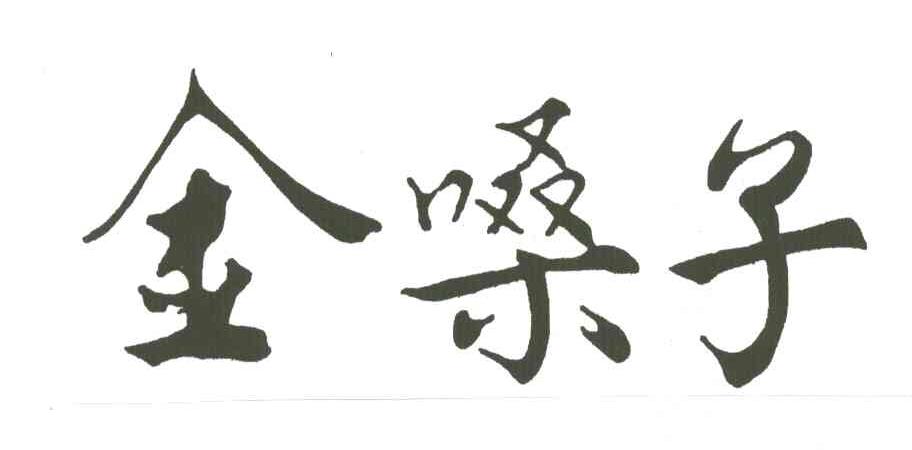 金嗓子